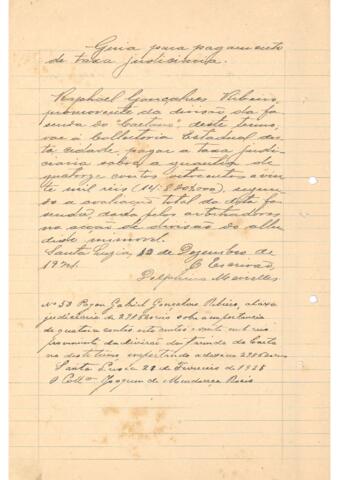 Guia para pagamento
de taxa judiciaria.
Raphael Gonçalves Ribeiro,
promovente da divisão da fa-
zenda do "Caetano", deste termo,
vae á Collectoria Estadual des-
ta cidade, pagar a taxa judi-
ciaria sobre a quantia de
quatorze contos oitocentos e vin-
te mil réis (14:820$000), segun-
do a avaliação total da dita fa-
zenda, dada pelos arbitradores
na acção de divisão do allu-
dido immovel.
Santa Luzia, 12 de Dezembro de
1924. O Escrivão,
Delphino Meirelles
Nº 53 Pagou Gabriel Gonçalves Ribeiro, a taxa
judiciaria de sobre a importancia
de quatorze contos oito centos e vinte mil reis
proveniente da divisão da fazenda do
neste termo, importando a
Santa Luzia 28 de Fevereiro de 1925
O Coll.or Joaquim de Mendonça Reis